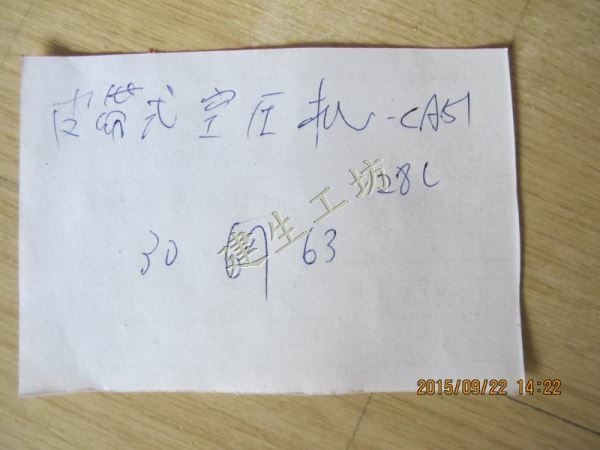 皮带式空压机-CA51
28L
30 63
建生工坊
2015/09/22 14:22